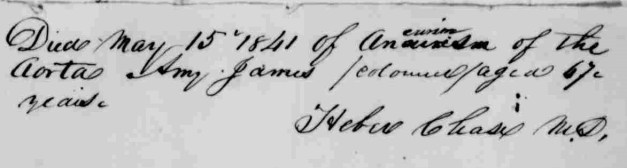 Died May 15 1841 of Aneurism of the
Aorta Amy James /coloured/ aged 67
years.
Heber Chase M.D.